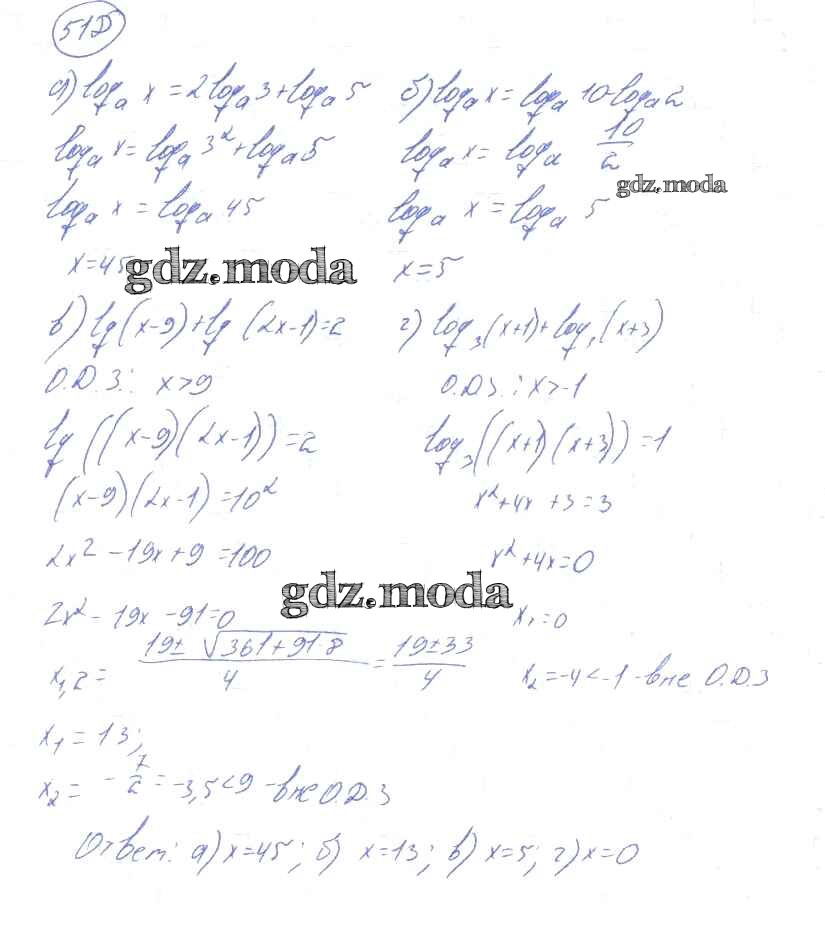 51D
а) logₐ x = 2logₐ3 + logₐ 5
logₐ x = logₐ 3² + logₐ 5
logₐ x = logₐ 45
x = 45
б) logₐ x = logₐ 10 - logₐ 2
logₐ x = logₐ 10/2
gdz.moda
logₐ x = logₐ 5
x = 5
gdz.moda
в) lg (x-9) + lg (2x-1) = 2
О.Д.З.: x > 9
lg ((x-9)(2x-1)) = 2
(x-9)(2x-1) = 10²
2x² - 19x + 9 = 100
2x² - 19x - 91 = 0
x₁,₂ = (19 ± √(361 + 91·8))/4 = (19 ± 33)/4
x₁ = 13;
x₂ = -7/2 = -3,5 < 9 - вне О.Д.З
г) log₃ (x+1) + log₃ (x+3)
О.Д.З.: x > -1
log₃ ((x+1)(x+3)) = 1
x² + 4x + 3 = 3
x² + 4x = 0
gdz.moda
x₁ = 0
x₂ = -4 < -1 - вне О.Д.З
Ответ: а) x = 45; б) x = 13; в) x = 5; г) x = 0